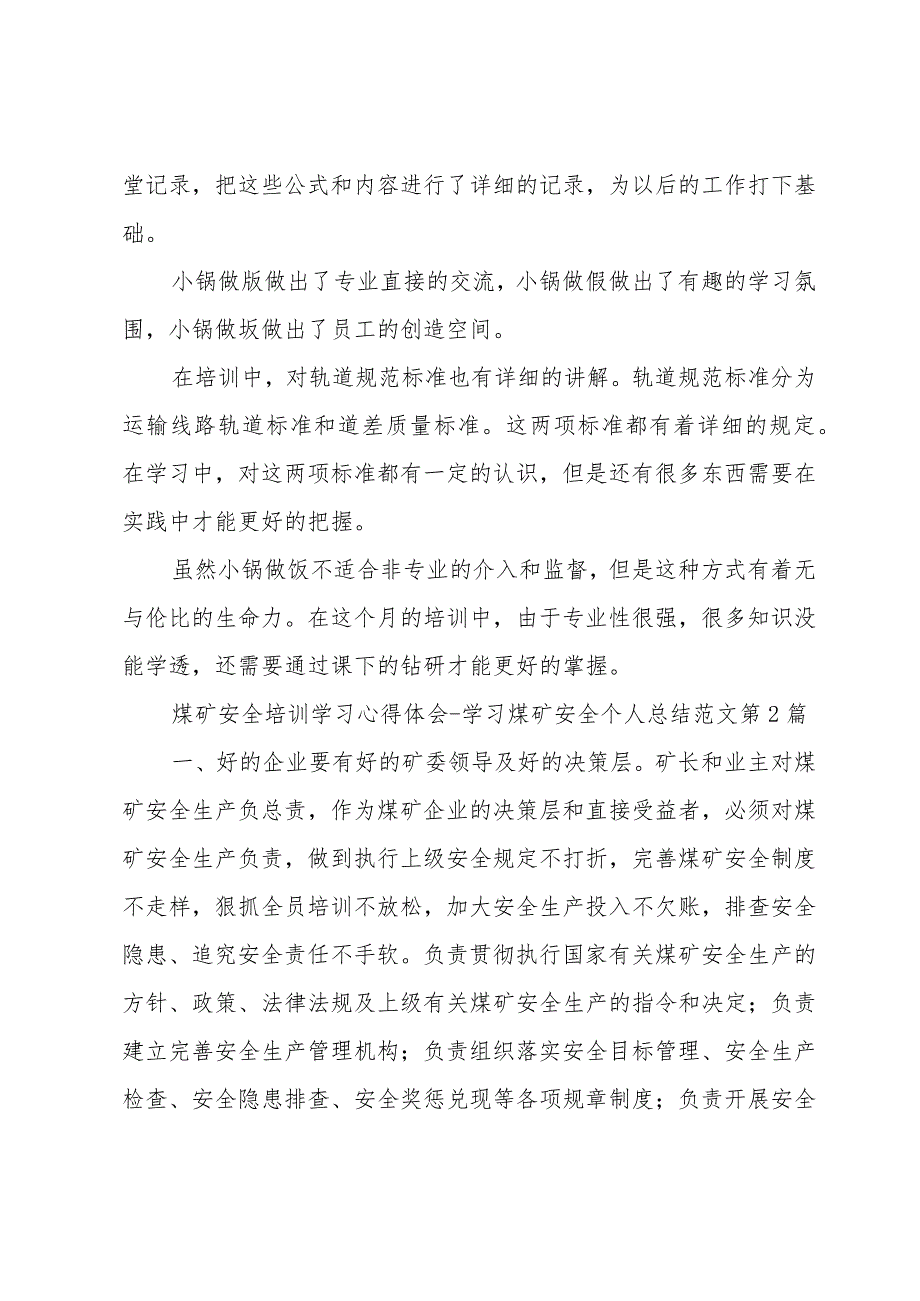 堂记录，把这些公式和内容进行了详细的记录，为以后的工作打下基
础。
小锅做版做出了专业直接的交流，小锅做假做出了有趣的学习氛
围，小锅做坂做出了员工的创造空间。
在培训中，对轨道规范标准也有详细的讲解。轨道规范标准分为
运输线路轨道标准和道差质量标准。这两项标准都有着详细的规定。
在学习中，对这两项标准都有一定的认识，但是还有很多东西需要在
实践中才能更好的把握。
虽然小锅做饭不适合非专业的介入和监督，但是这种方式有着无
与伦比的生命力。在这个月的培训中，由于专业性很强，很多知识没
能学透，还需要通过课下的钻研才能更好的掌握。
煤矿安全培训学习心得体会-学习煤矿安全个人总结范文第2篇
一、好的企业要有好的矿委领导及好的决策层。矿长和业主对煤
矿安全生产负总责，作为煤矿企业的决策层和直接受益者，必须对煤
矿安全生产负责，做到执行上级安全规定不打折，完善煤矿安全制度
不走样，狠抓全员培训不放松，加大安全生产投入不欠账，排查安全
隐患、追究安全责任不手软。负责贯彻执行国家有关煤矿安全生产的
方针、政策、法律法规及上级有关煤矿安全生产的指令和决定；负责
建立完善安全生产管理机构；负责组织落实安全目标管理、安全生产
检查、安全隐患排查、安全奖惩兑现等各项规章制度；负责开展安全